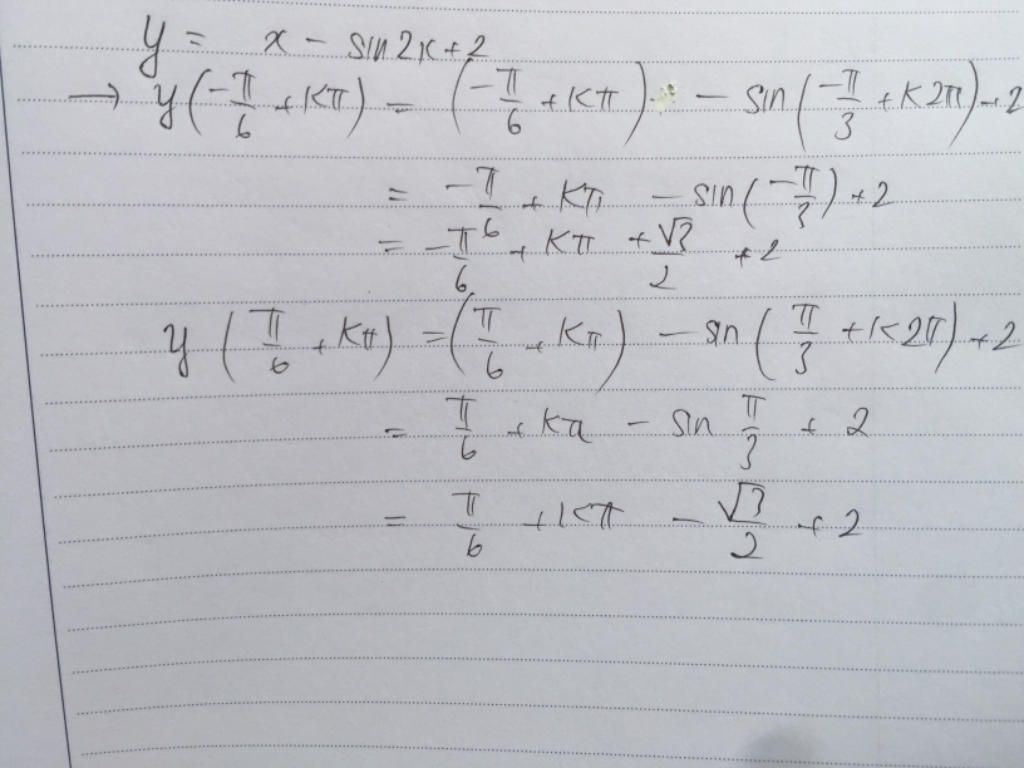 y = x - sin2x+2
→ y(-π/6 + kπ) = (-π/6 + kπ) - sin(-π/3 + k2π)+2
= -π/6 + kπ - sin(-π/3) + 2
= -π/6 + kπ + √3/2 + 2
y(π/6 + kπ) = (π/6 + kπ) - sin(π/3 + k2π) + 2
= π/6 + kπ - sin π/3 + 2
= π/6 + kπ - √3/2 + 2